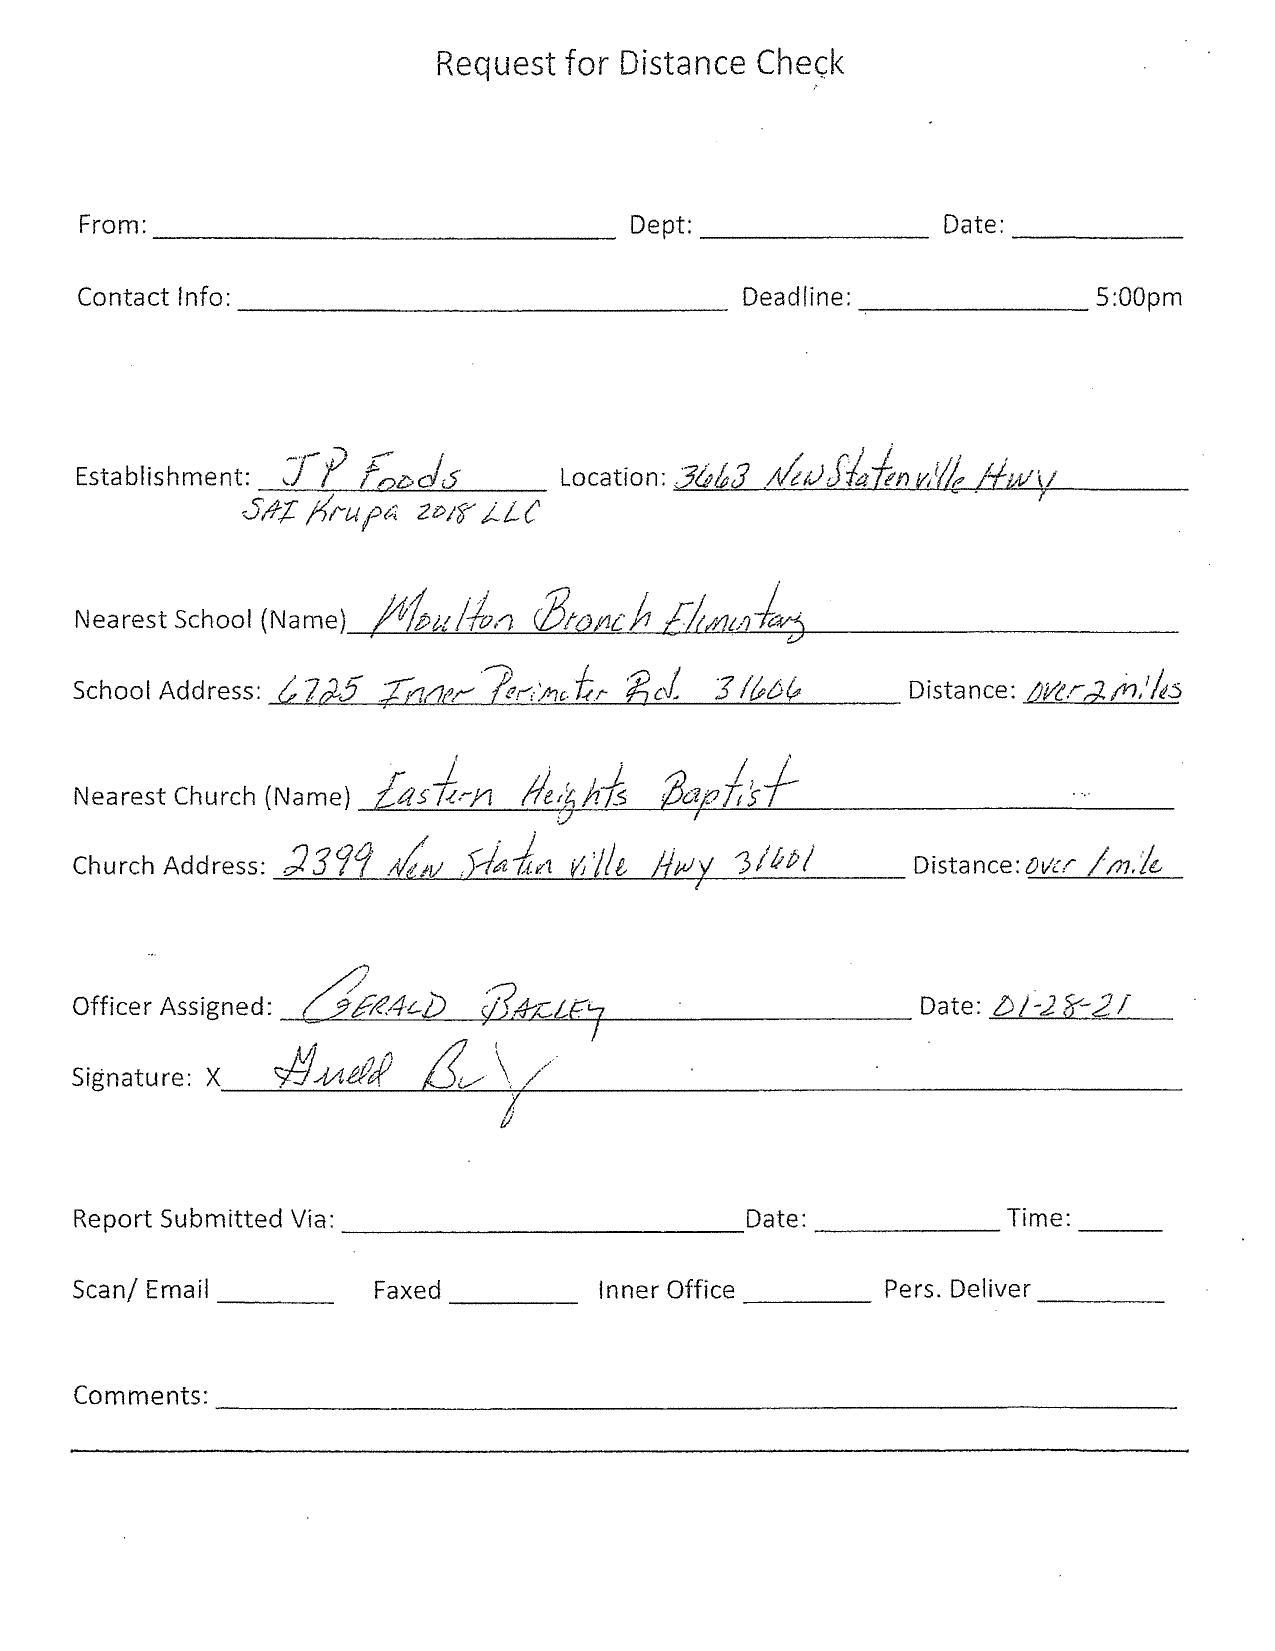 Request for Distance Check
From: Dept: Date:
Contact Info: Deadline: 5:00pm
Establishment: JP Foods Location: 3663 New Statenville Hwy
SAI Krupa 2018 LLC
Nearest School (Name) Moulton Branch Elementary
School Address: 6725 Inner Perimeter Rd. 31606 Distance: over 2 miles
Nearest Church (Name) Eastern Heights Baptist
Church Address: 2399 New Statenville Hwy 31601 Distance: over 1 mile
Officer Assigned: GERALD BAILEY Date: 01-28-21
Signature: X
Report Submitted Via: Date: Time:
Scan/ Email Faxed Inner Office Pers. Deliver
Comments: